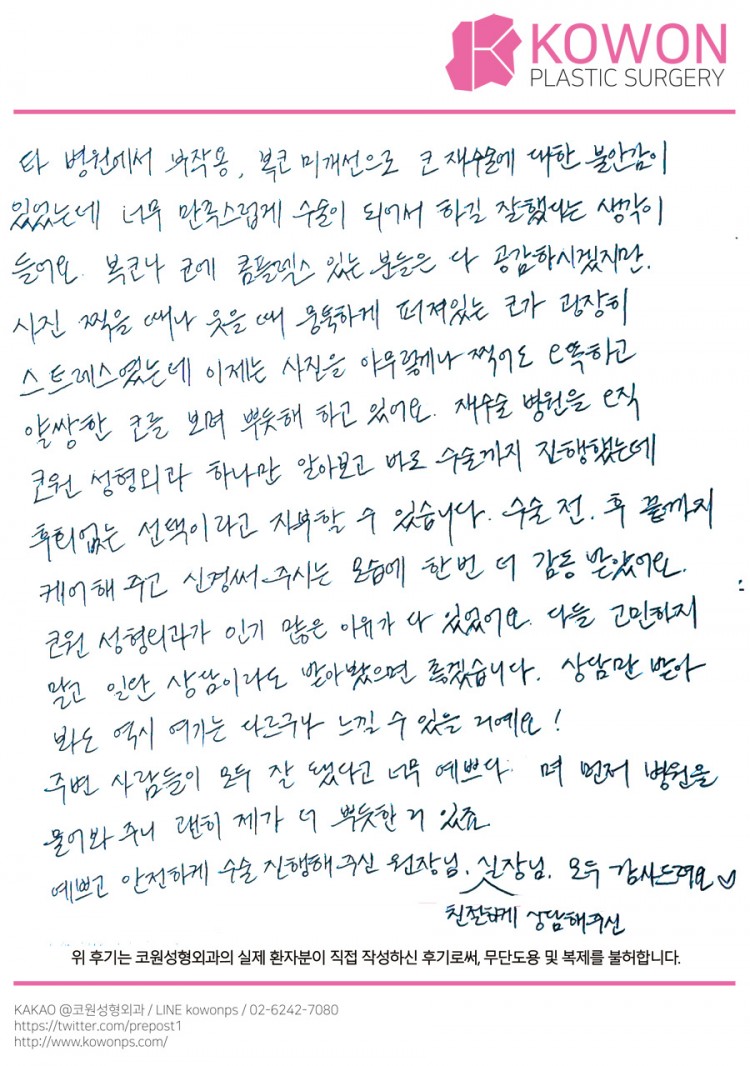 KOWON
PLASTIC SURGERY
타 병원에서 부작용, 복코 미개선으로 코 재수술에 대한 불안감이
있었는데 너무 만족스럽게 수술이 되어서 하길 잘했다는 생각이
들어요. 복코나 코에 콤플렉스 있는 분들은 다 공감하시겠지만,
사진 찍을 때나 웃을 때 뭉뚝하게 퍼져있는 코가 굉장히
스트레스였는데 이제는 사진을 아무렇게나 찍어도 오똑하고
얄쌍한 코를 보며 뿌듯해 하고 있어요. 재수술 병원을 오직
코원 성형외과 하나만 알아보고 바로 수술까지 진행했는데
후회없는 선택이라고 자부할 수 있습니다. 수술 전, 후 끝까지
케어해 주고 신경써 주시는 모습에 한번 더 감동 받았어요.
코원 성형외과가 인기 많은 이유가 다 있었어요. 다들 고민하지
말고 일단 상담이라도 받아봤으면 좋겠습니다. 상담만 받아
봐도 역시 여기는 다르구나 느낄 수 있을 거예요!
주변 사람들이 모두 잘 됐다고 너무 예쁘다 며 먼저 병원을
물어봐 주니 괜히 제가 더 뿌듯한 거 있죠
예쁘고 안전하게 수술 진행해주신 원장님, 실장님, 모두 감사드려요♡
친절하게 상담해주신
위 후기는 코원성형외과의 실제 환자분이 직접 작성하신 후기로써, 무단도용 및 복제를 불허합니다.
KAKAO @코원성형외과 / LINE kowonps / 02-6242-7080
https://twitter.com/prepost1
http://www.kowonps.com/